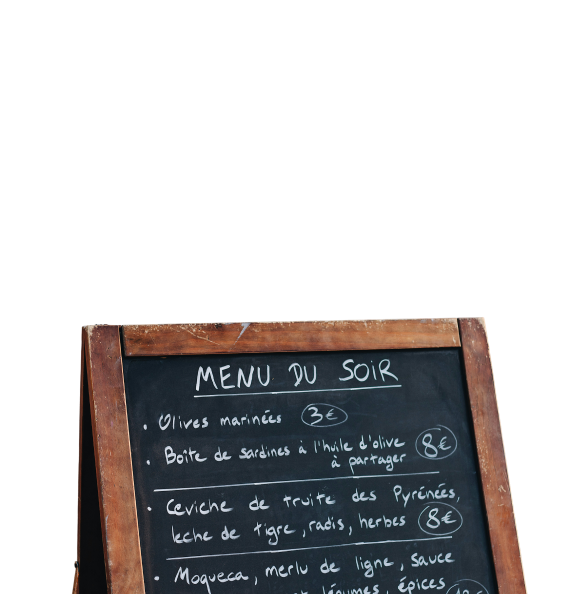 MENU DU SOIR
• Olives marinées 3€
• Boîte de sardines à l'huile d'olive
à partager 8€
• Ceviche de truite des Pyrénées,
leche de tigre, radis, herbes 8€
• Moqueca, merlu de ligne, sauce
légumes, épices